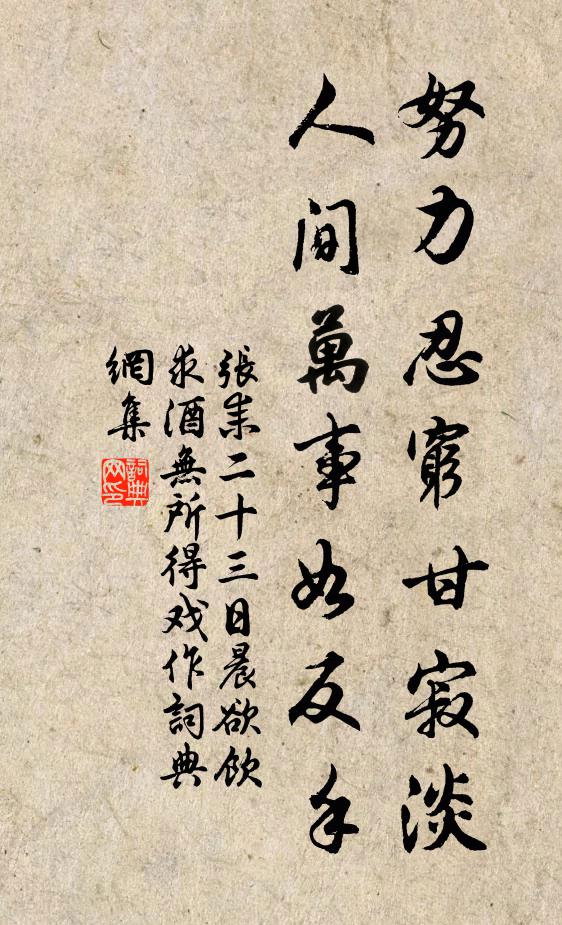 努力忍窮甘寂淡
人間萬事如反手
張耒二十三日晨欲飲
求酒無所得戏作詞典
網集
詞典网印